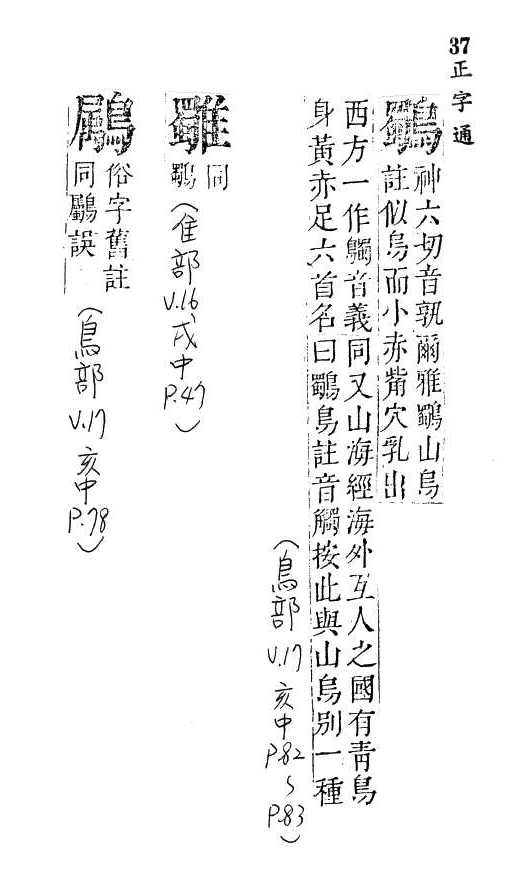 37正字通
鸀神六切音孰爾雅鸀山烏
註似烏而小赤觜穴乳出
西方一作鸀音義同又山海經海外互人之國有青鳥
身黃赤足六首名曰鸀鳥註音觸按此與山烏別一種
(鳥部 V.17 亥中 P.82~P.83)
同
鸀
(隹部 V.16 戌中 P.47)
俗字舊註
同鸓誤
(鳥部 V.17 亥中 P.78)